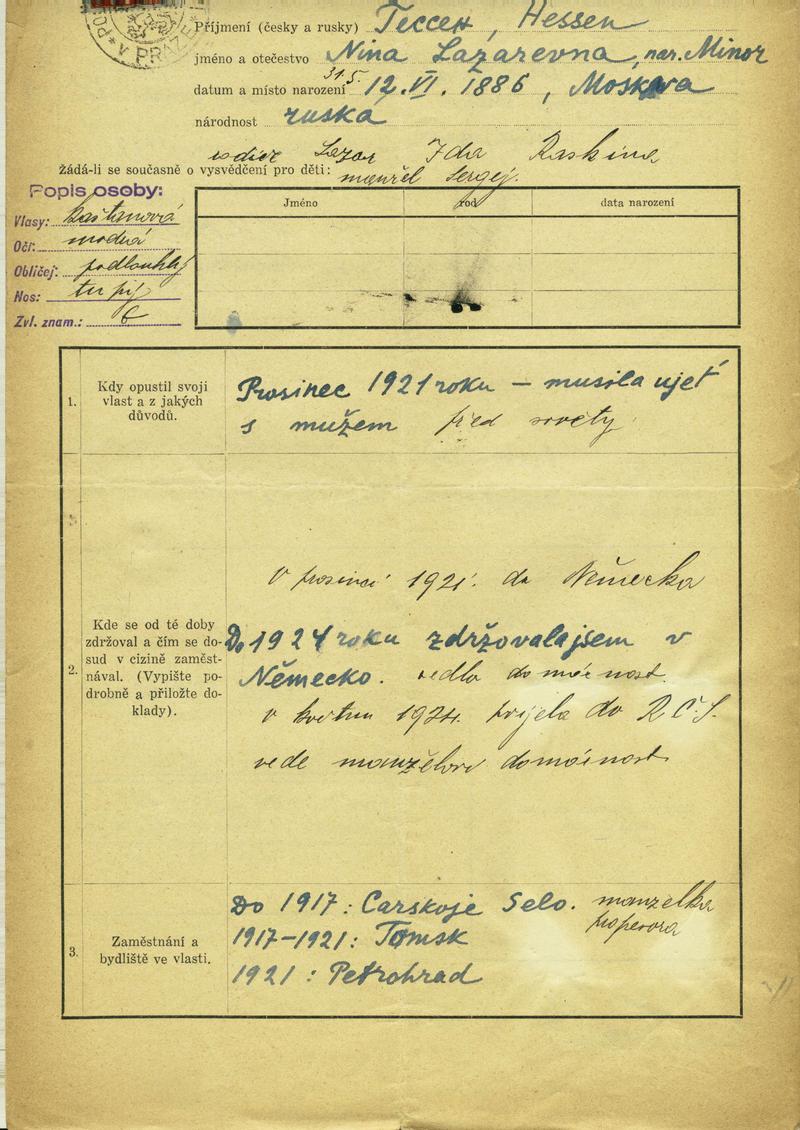 V PRAZE
Příjmení (česky a rusky) Гессен, Hessen
jméno a otečestvo Nina Lazarevna, nar. Minor
31.5.
datum a místo narození 12. VI. 1886, Moskva
národnost ruská
rodiče Lazar Ida Raskina
Žádá-li se současně o vysvědčení pro děti: manžel Sergej.
Popis osoby:
Vlasy: kaštanová
Oči: modrá
Obličej: podlouhlý
Nos: tupý
Zvl. znam.:
Jméno rod data narození
1. Kdy opustil svoji vlast a z jakých důvodů.
Prosinec 1921 roku – musila ujeť
s mužem před sověty
2. Kde se od té doby zdržoval a čím se do-
sud v cizině zaměst-
nával. (Vypište po-
drobně a přiložte do-
klady).
V prosinci 1921. do Německa
Do 1924 roku zdržovala jsem v
Německo. vedla domácnost
v květnu 1924. přijela do R.Č.S.
vede manželovi domácnost
3. Zaměstnání a
bydliště ve vlasti.
Do 1917: Carskoje Selo. manželka
profesora
1917-1921: Tomsk
1921: Petrohrad